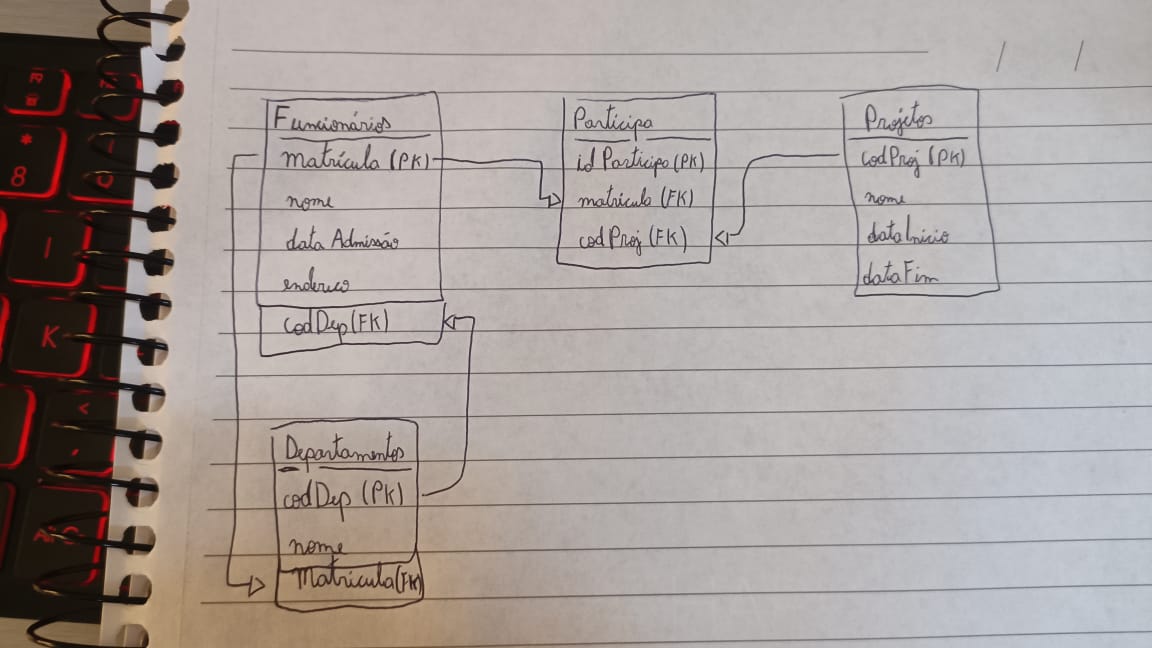 Funcionários
matrícula (PK)
nome
data Admissão
endereco
codDep (FK)
Participa
idParticipa (PK)
matrícula (FK)
codProj (FK)
Projetos
codProj (PK)
nome
dataInicio
dataFim
Departamentos
codDep (PK)
nome
Matricula (FK)
/ /
*
8
K